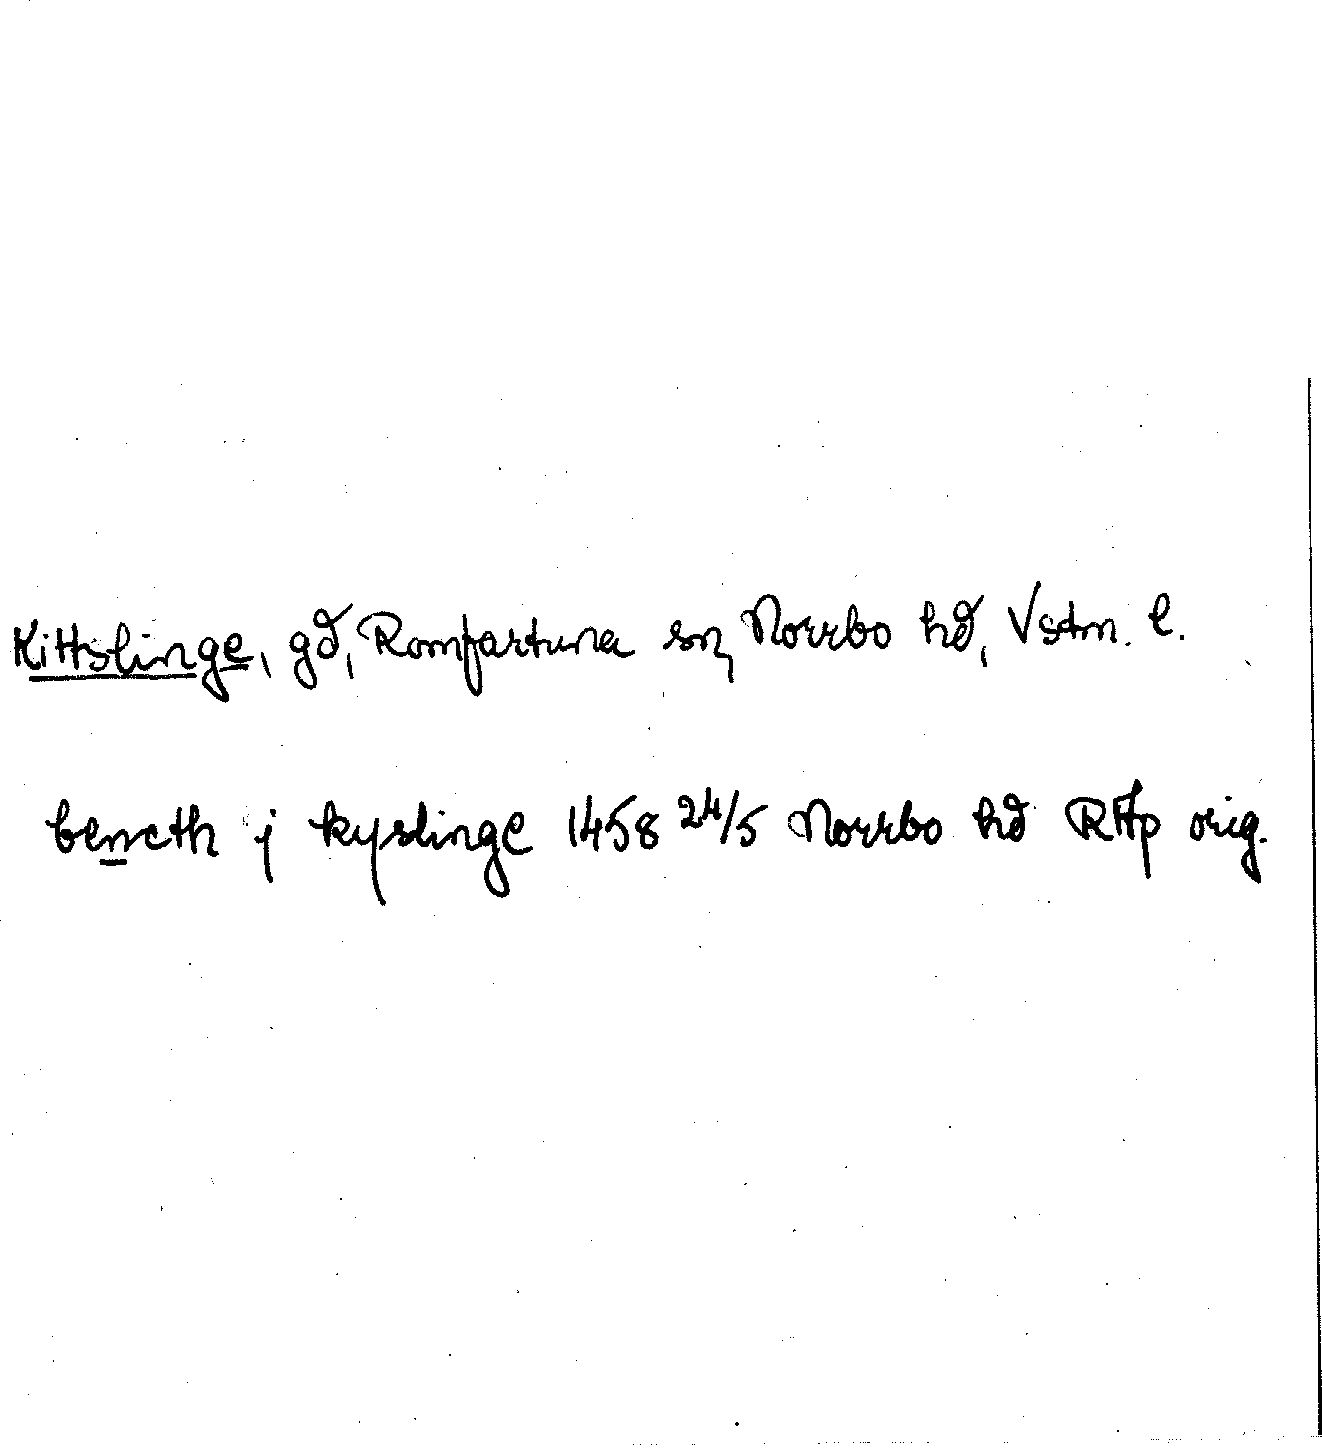 Kittslinge, gd, Romfartuna sn, Norrbo hd, Vstm. l.
bencth j kyslinge 1458 24/5 Norrbo hd RAp orig.